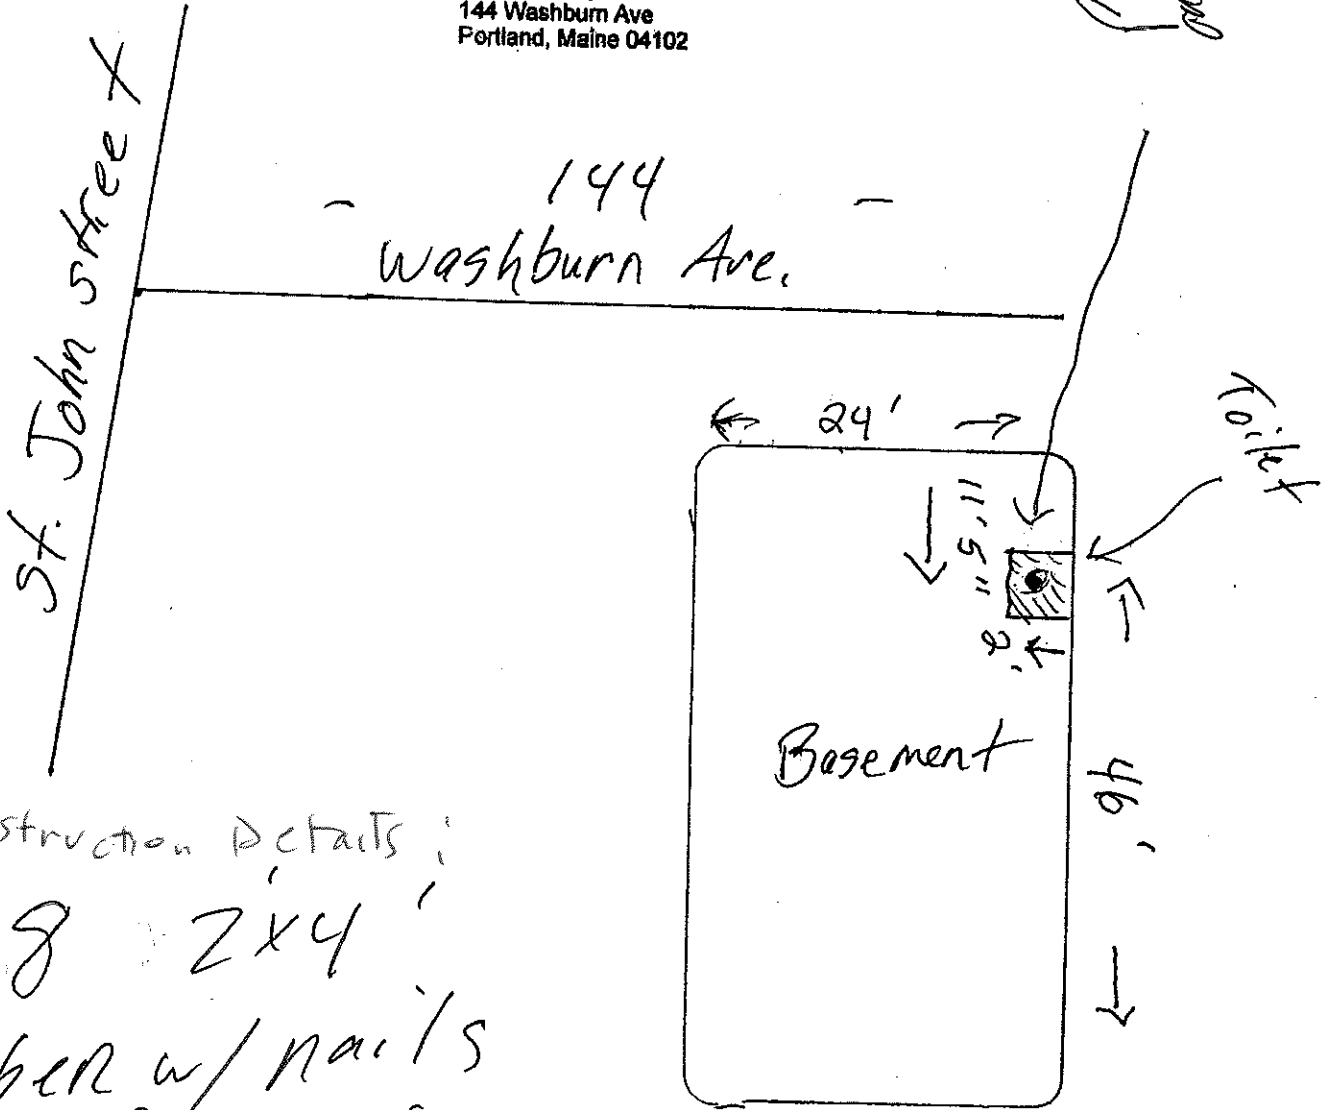 144 Washburn Ave
Portland, Maine 04102
St. John street
- 144 -
Washburn Ave.
24'
Toilet
11' 5"
2'
Basement
46'
struction Details:
8 2'x4'
ber w/ nails